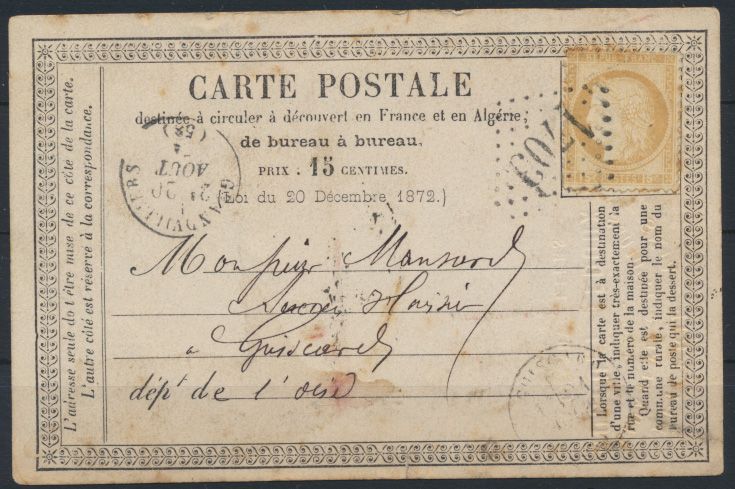 CARTE POSTALE
destinée à circuler à découvert en France et en Algérie,
de bureau à bureau.
PRIX : 15 CENTIMES.
(Loi du 20 Décembre 1872.)
Monsieur Mansard
à Guiscard
dépt de l'oise
L'adresse seule doit être mise de ce côté de la carte.
L'autre côté est réservé à la correspondance.
Lorsque la carte est à destination
d'une ville, indiquer très-exactement la
rue et le numéro de la maison.
Quand elle est destinée pour une
commune rurale, indiquer le nom du
bureau de poste qui la dessert.
GRANDVILLIERS
21
AOUT
(58)
1703